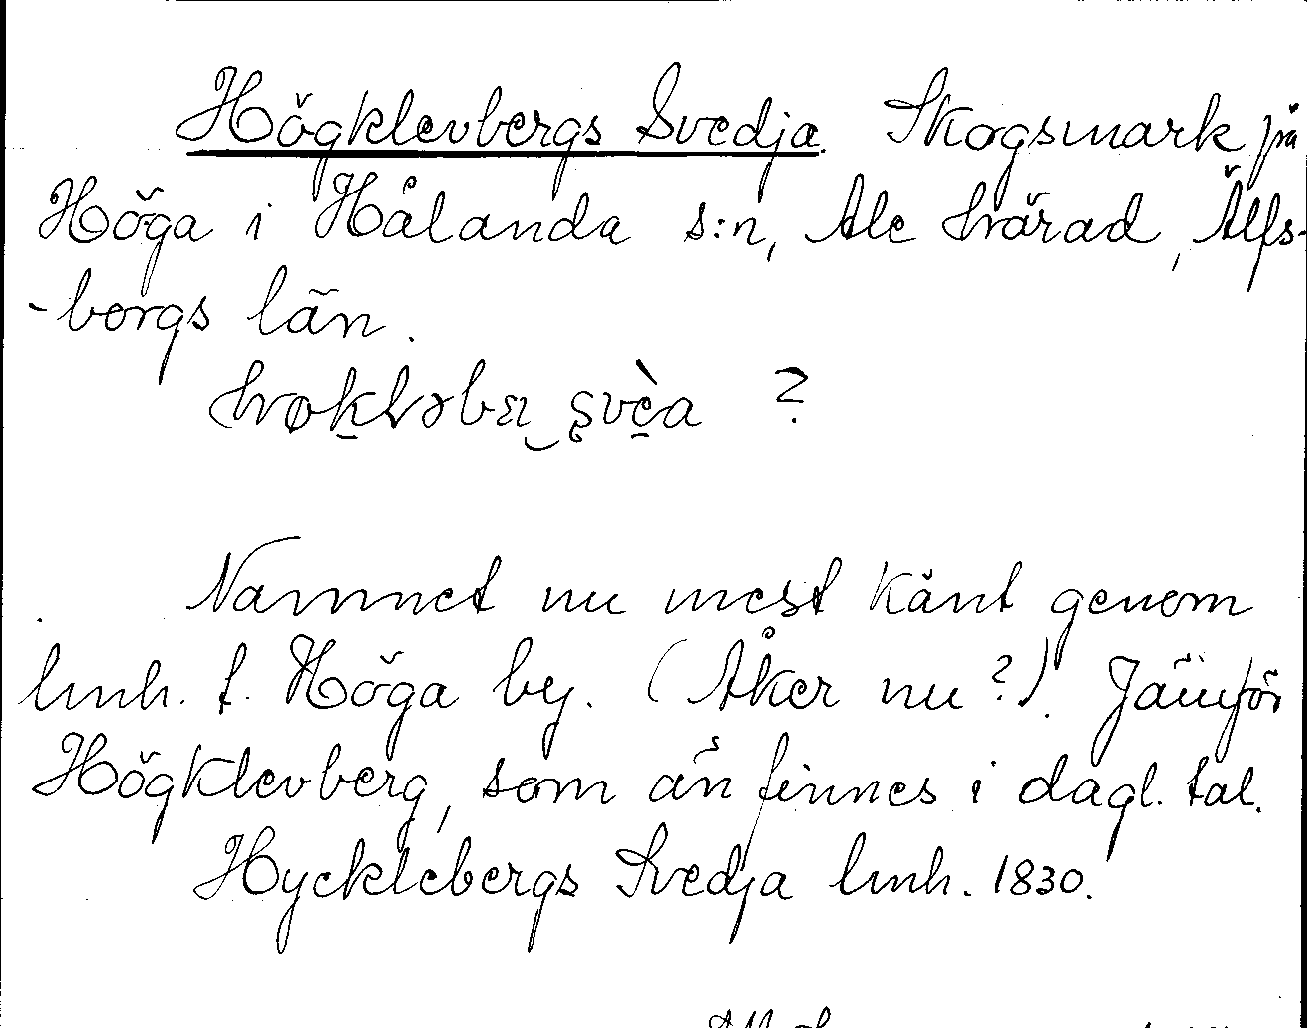 Högklevbergs Svedja. Skogsmark på
Höga i Hålanda s:n, Ale härad, Älfs-
-borgs län.
?
Namnet nu mest känt genom
lmh. t. Höga by. (Åker nu?). Jämför
Högklevberg, som än finnes i dagl. tal.
Hycklebergs Svedja lmh. 1830.